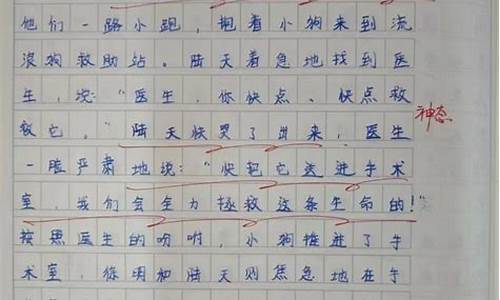 他们一路小跑，抱着小狗来到流
浪狗救助站。陆天着急地找到医
生，说："医生，你快点、快点救
救它。"陆天快哭了出来，医生
一脸严肃地说："快把它送进手术
室，我们会全力拯救这条生命的！"
按照医生的吩咐，小狗推进了手
术室，徐明和陆天则焦急地在手
神态